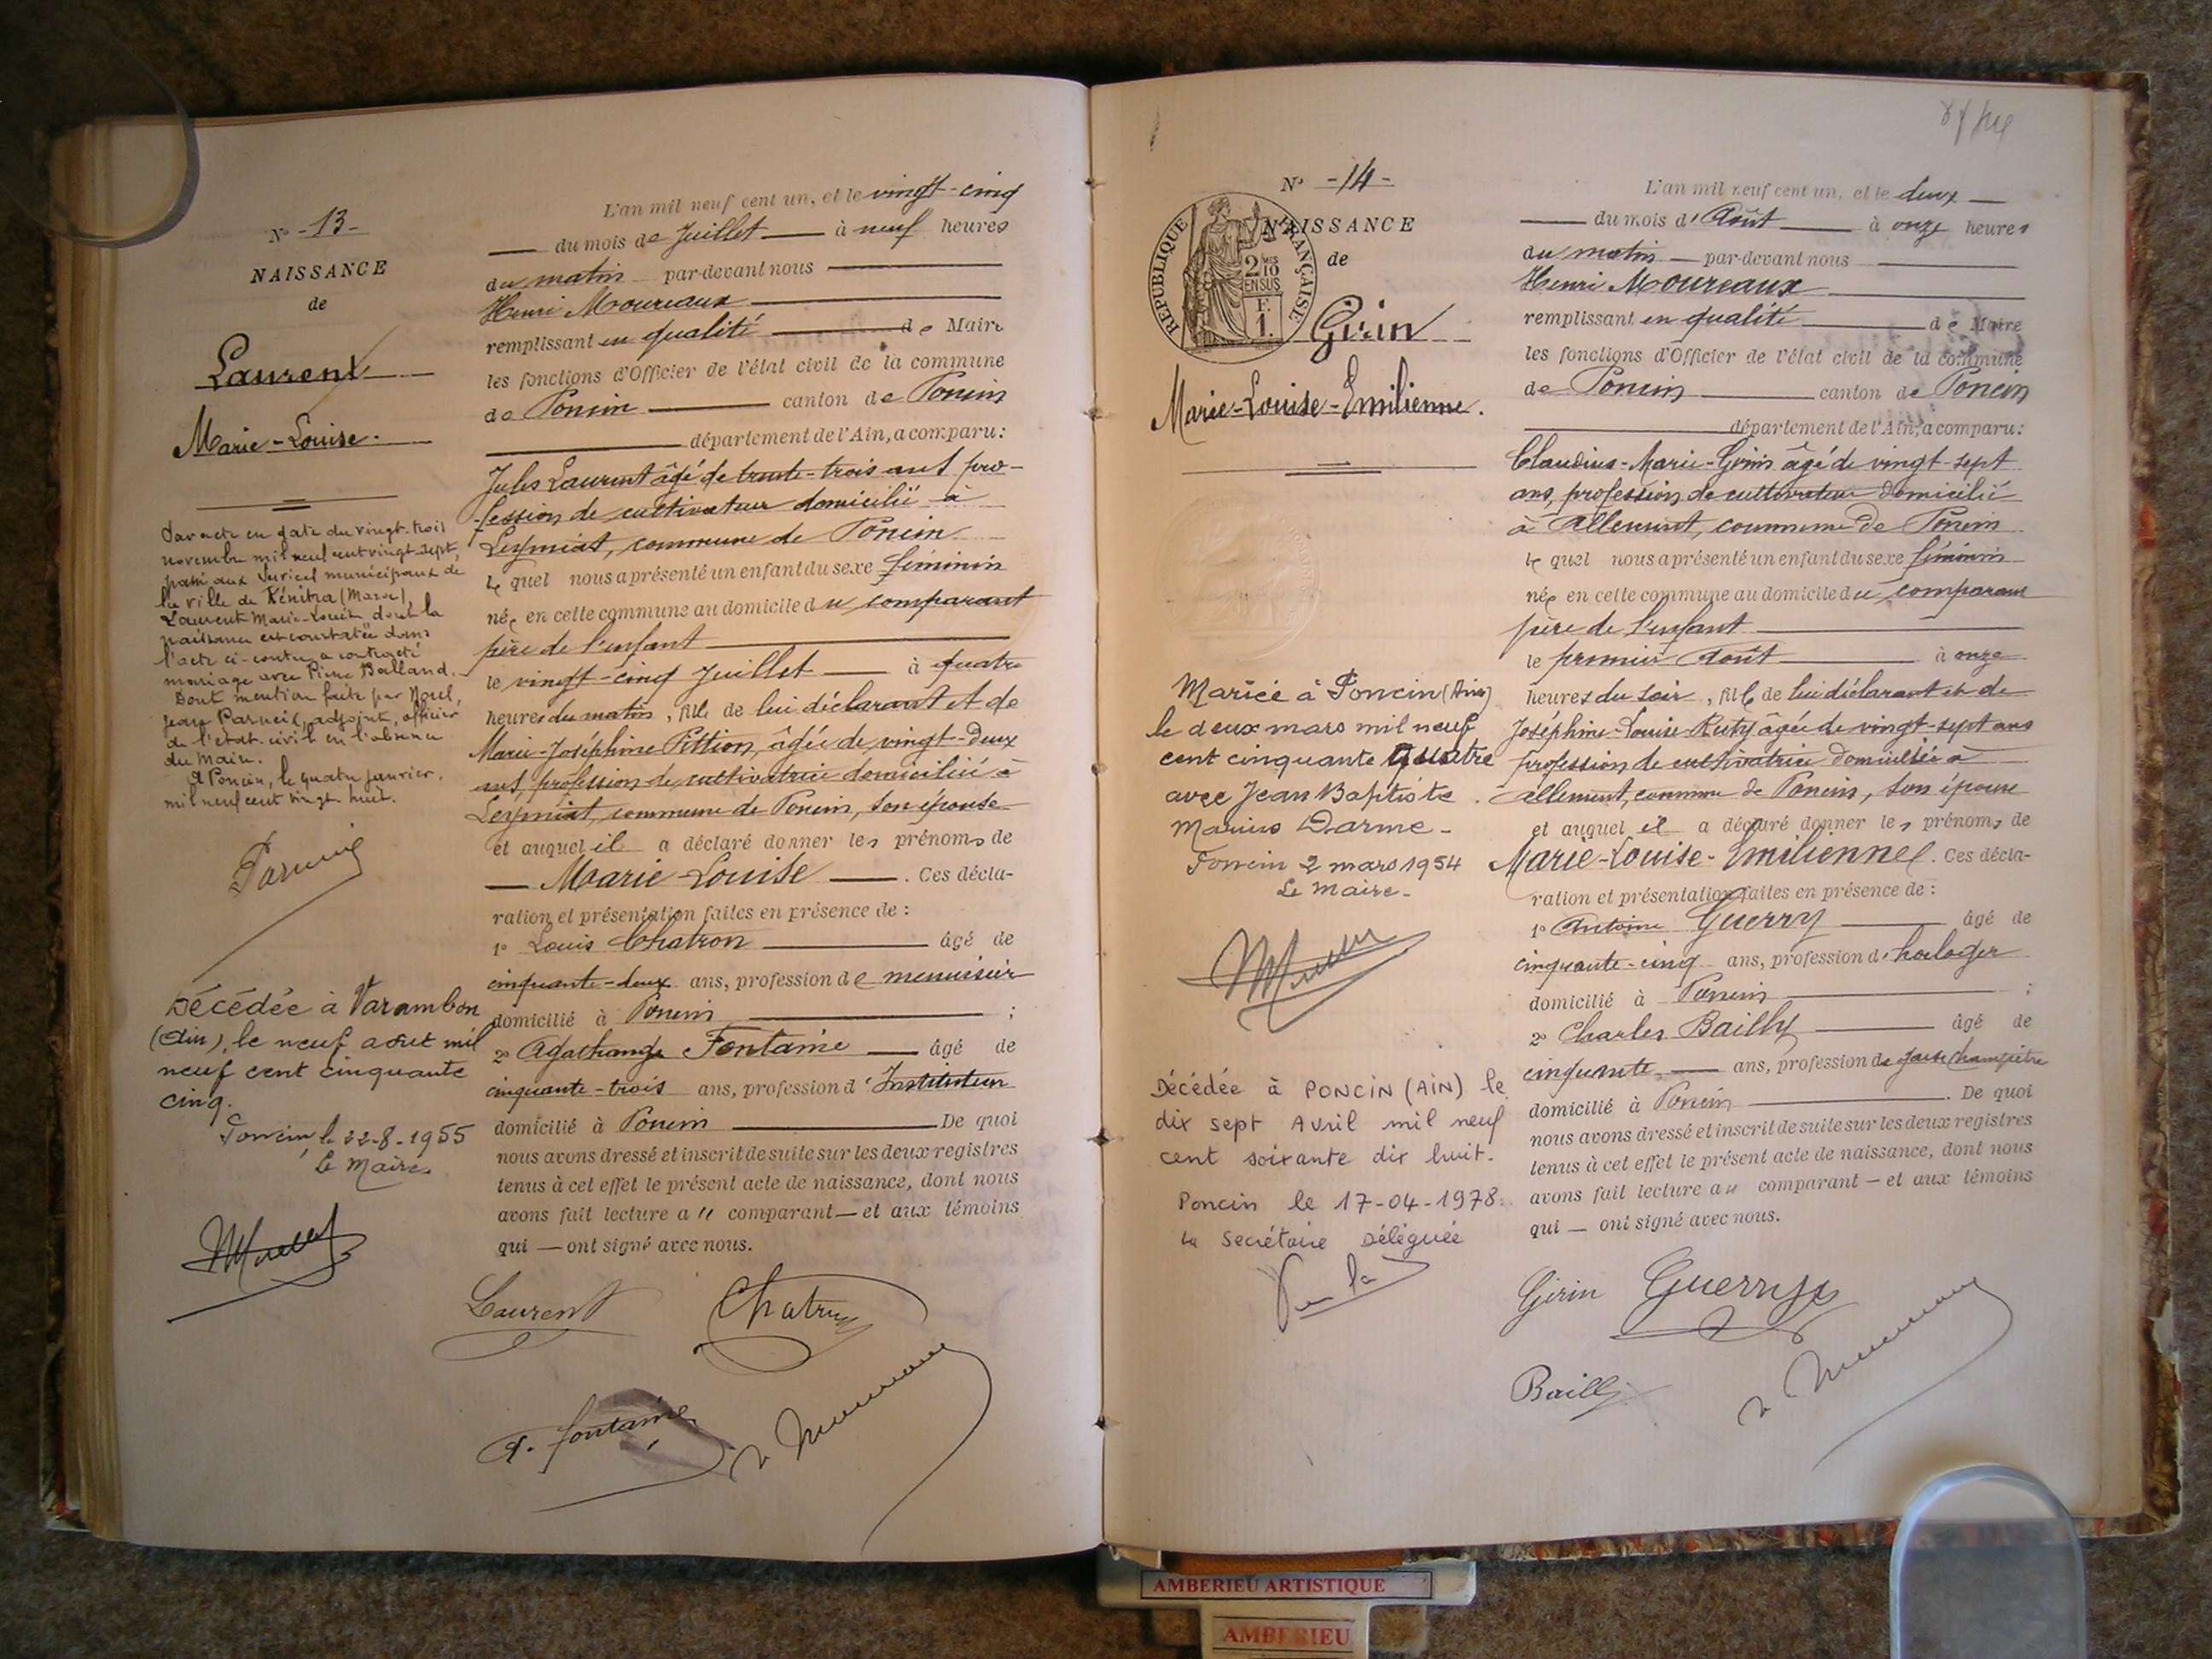 N° -13-
NAISSANCE
de
Laurent
Marie-Louise.
Par acte en date du vingt-trois
novembre mil neuf cent vingt-sept,
passé aux Services municipaux de
la ville de Kénitra (Maroc),
Laurent Marie-Louise dont la
naissance est constatée dans
l'acte ci-contre a contracté
mariage avec Pierre Balland.
Dont mention faite par Nous,
Jean Parneix, adjoint, officier
de l'état-civil en l'absence
du Maire.
A Poncin, le quatre janvier,
mil neuf cent vingt huit.
Décédée à Varambon
(Ain), le neuf août mil
neuf cent cinquante
cinq.
Poncin, le 22-8-1955
Le Maire
L'an mil neuf cent un, et le vingt-cinq
du mois de Juillet à neuf heures
du matin par-devant nous
Henri Moureaux
remplissant en qualité de Maire
les fonctions d'Officier de l'état civil de la commune
de Poncin canton de Poncin
département de l'Ain, a comparu:
Jules Laurent âgé de trente-trois ans pro-
fession de cultivateur domicilié à
Leymiat, commune de Poncin
lequel nous a présenté un enfant du sexe féminin
née en cette commune au domicile du comparant
père de l'enfant
le vingt-cinq Juillet à quatre
heures du matin, fille de lui déclarant et de
Marie-Joséphine Pittion, âgée de vingt-deux
ans, profession de cultivatrice domiciliée à
Leymiat, commune de Poncin, son épouse
et auquel il a déclaré donner les prénoms de
Marie Louise. Ces décla-
ration et présentation faites en présence de :
1° Louis Chatron âgé de
cinquante-deux ans, profession de menuisier
domicilié à Poncin ;
2° Agathange Fontaine âgé de
cinquante-trois ans, profession d'Instituteur
domicilié à Poncin De quoi
nous avons dressé et inscrit de suite sur les deux registres
tenus à cet effet le présent acte de naissance, dont nous
avons fait lecture au comparant — et aux témoins
qui — ont signé avec nous.
Laurent Chatron
A. Fontaine
N° -14-
NAISSANCE
de
RÉPUBLIQUE FRANÇAISE
2/10 EN SUS
F.
1.
Girin
Marie-Louise-Emilienne.
Mariée à Poncin (Ain)
le deux mars mil neuf
cent cinquante quatre
avec Jean Baptiste
Marius Darme -
Poncin 2 mars 1954
Le Maire -
Décédée à PONCIN (AIN) le
dix sept Avril mil neuf
cent soixante dix huit.
Poncin le 17-04-1978.
La Secrétaire Déléguée
L'an mil neuf cent un, et le deux
du mois d'Août à onze heures
du matin par-devant nous
Henri Moureaux
remplissant en qualité de Maire
les fonctions d'Officier de l'état civil de la commune
de Poncin canton de Poncin
département de l'Ain, a comparu:
Claudius-Marie-Girin âgé de vingt-sept
ans, profession de cultivateur domicilié
à Allement, commune de Poncin
lequel nous a présenté un enfant du sexe féminin
née en cette commune au domicile du comparant
père de l'enfant
le premier Août à onze
heures du soir, fille de lui déclarant et de
Joséphine-Louise-Ruty âgée de vingt-sept ans
profession de cultivatrice domiciliée à
Allement, commune de Poncin, son épouse
et auquel il a déclaré donner les prénoms de
Marie-Louise-Emilienne. Ces décla-
ration et présentation faites en présence de :
1° Antoine Guerry âgé de
cinquante-cinq ans, profession d'horloger
domicilié à Poncin ;
2° Charles Bailly âgé de
cinquante ans, profession de garde champêtre
domicilié à Poncin. De quoi
nous avons dressé et inscrit de suite sur les deux registres
tenus à cet effet le présent acte de naissance, dont nous
avons fait lecture au comparant — et aux témoins
qui — ont signé avec nous.
Girin Guerry
Bailly
AMBERIEU ARTISTIQUE
AMBERIEU